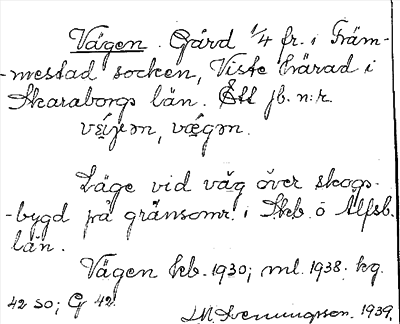 Vägen. Gård 1/4 fr. i Främ-
-mestad socken, Viste härad i
Skaraborgs län. Ett jb. n:r.
Läge vid väg över skogs-
-bygd på gränsomr. i Skb. o Älfsb.
län.
Vägen kb. 1930; ml. 1938. kg.
42 SO; G 42.
1939.